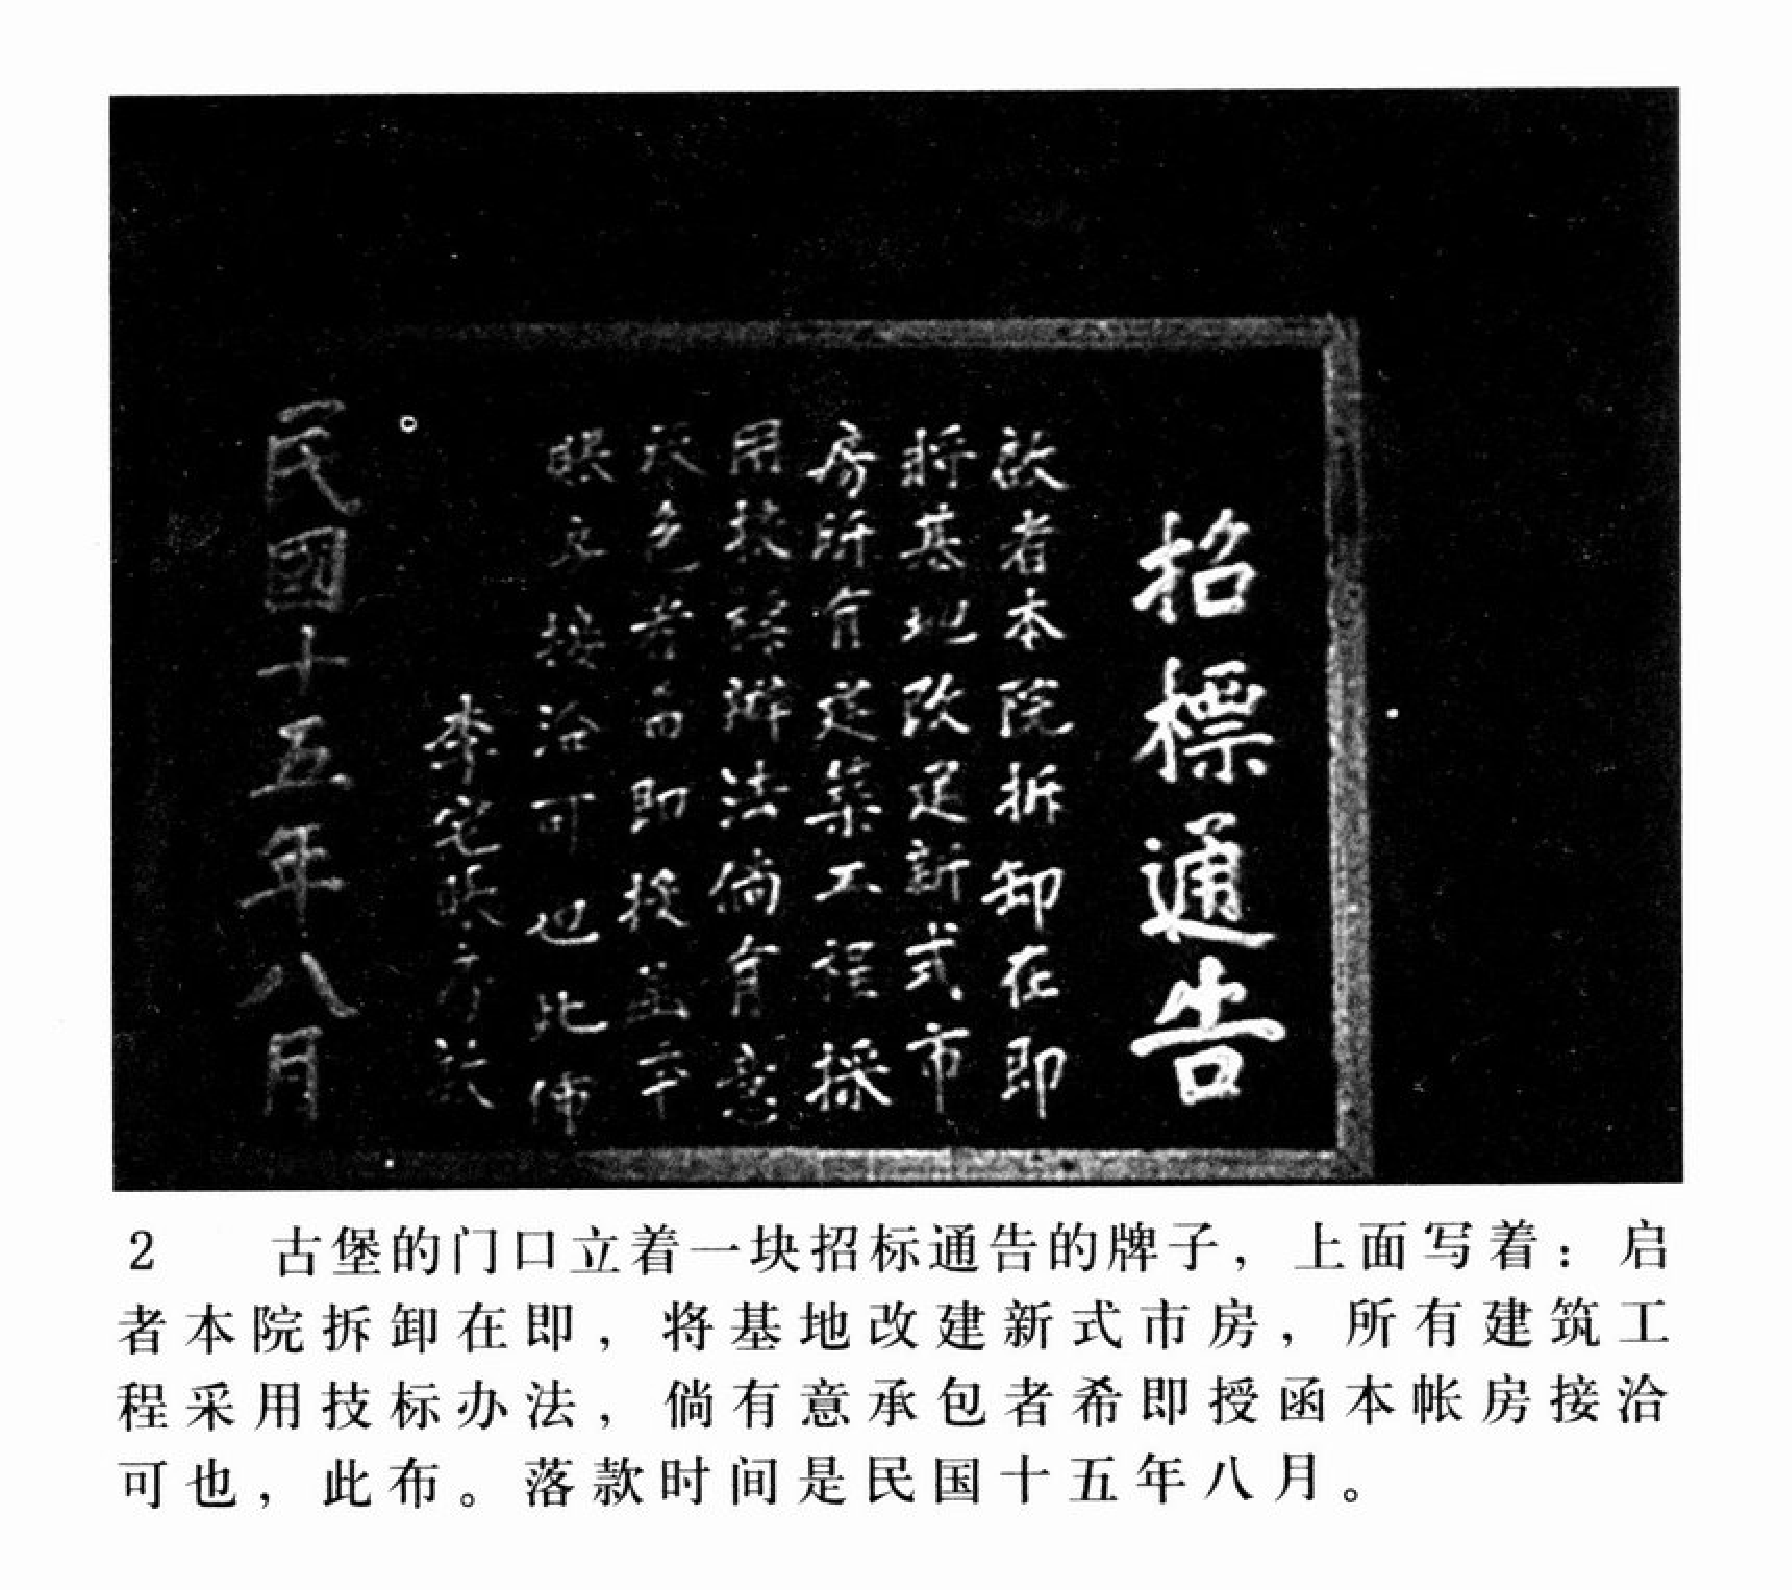 招標通告
啟者本院拆卸在即
將基地改建新式市
房所有建築工程採
用投標辦法倘有意
承包者希即投函本
賬房接洽可也此佈
李宅賬房啟
民國十五年八月
2 古堡的门口立着一块招标通告的牌子，上面写着：启
者本院拆卸在即，将基地改建新式市房，所有建筑工
程采用技标办法，倘有意承包者希即授函本帐房接洽
可也，此布。落款时间是民国十五年八月。